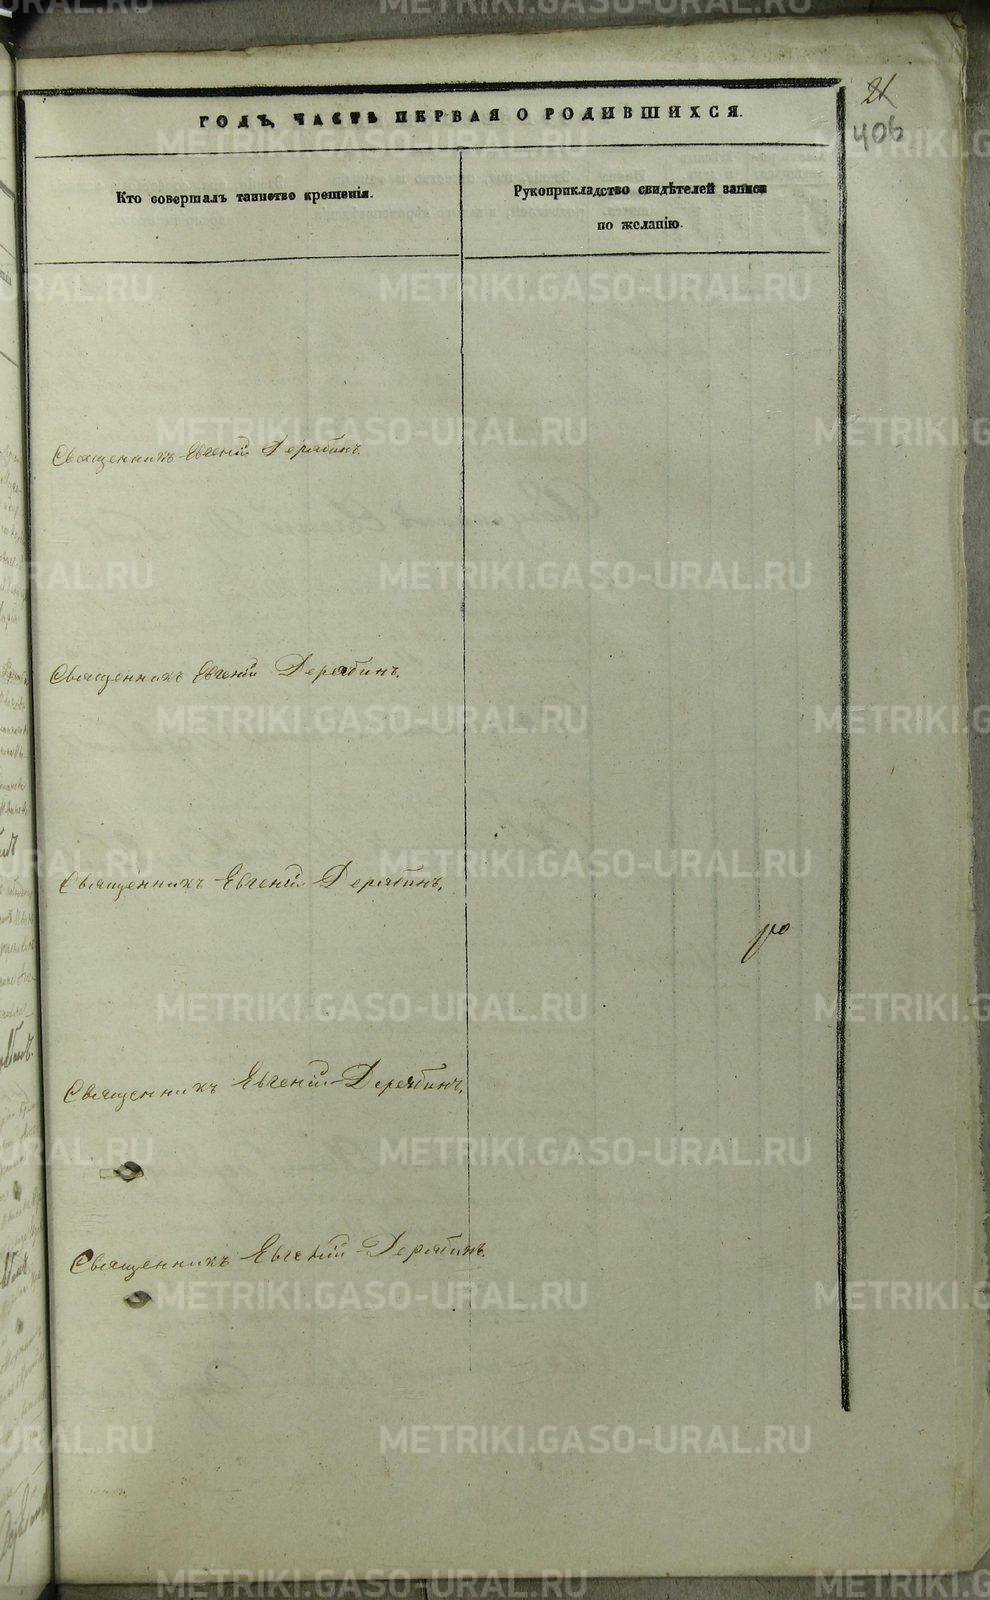 21
406
ГОДЪ, ЧАСТЬ ПЕРВАЯ О РОДИВШИХСЯ.
Кто совершалъ таинство крещенія.
Рукоприкладство свидѣтелей записи
по желанію.
Священникъ Евгеній Дерябинъ.
Священникъ Евгеній Дерябинъ.
Священникъ Евгеній Дерябинъ.
Священникъ Евгеній Дерябинъ.
Священникъ Евгеній Дерябинъ.
METRIKI.GASO-URAL.RU